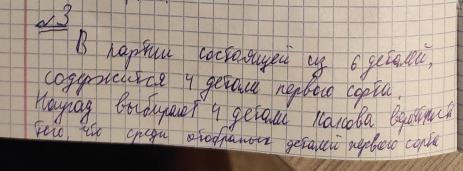 №3
В партии состоящей из 6 деталей,
содержится 4 детали первого сорта.
Наугад выбирают 4 детали Какова вероятность
того, что среди отобраных деталей первого сорта